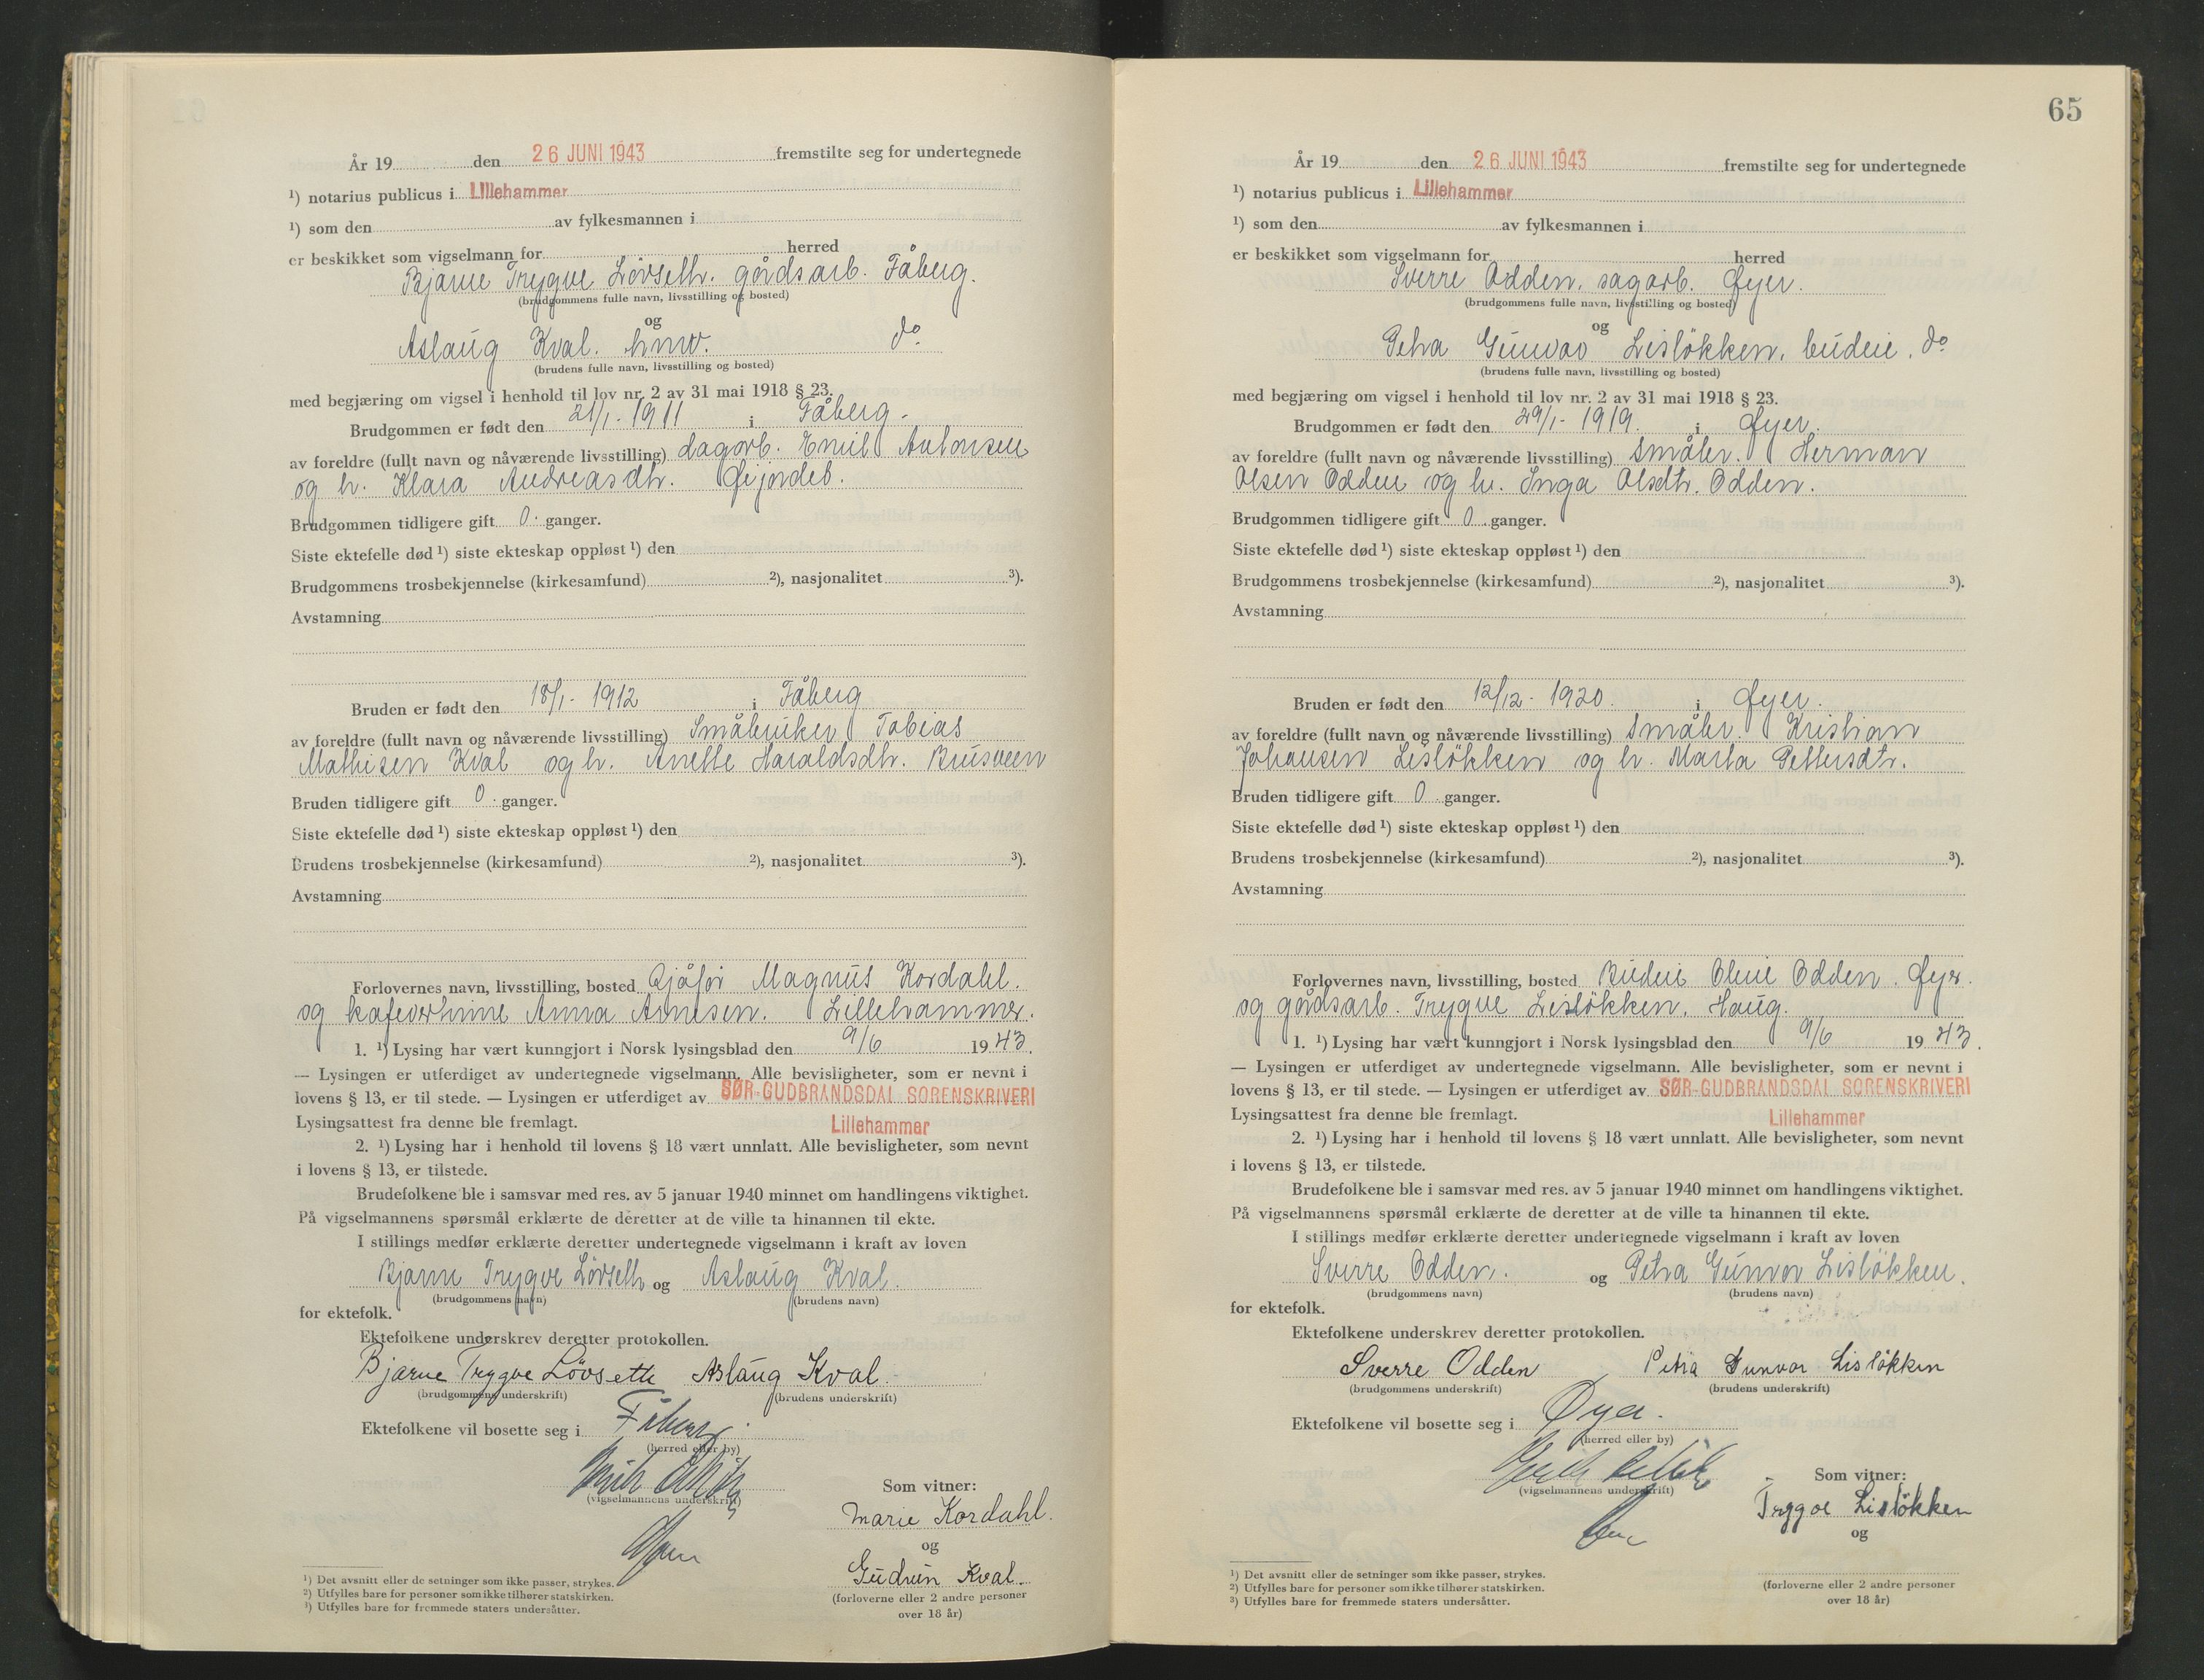 År 19 den 26 JUNI 1943 fremstilte seg for undertegnede
¹) notarius publicus i Lillehammer
¹) som den av fylkesmannen i
er beskikket som vigselmann for herred
Bjarne Trygve Lövseth. gårdsarb. Fåberg.
(brudgommens fulle navn, livsstilling og bosted)
og
Aslaug Kval. hmv. do
(brudens fulle navn, livsstilling og bosted)
med begjæring om vigsel i henhold til lov nr. 2 av 31 mai 1918 § 23.
Brudgommen er født den 21/1- 1911 i Fåberg.
av foreldre (fullt navn og nåværende livsstilling) dagarb. Emil Antonsen
og h. Klara Andreasdtr.
Brudgommen tidligere gift 0. ganger.
Siste ektefelle død ¹) siste ekteskap oppløst ¹) den
Brudgommens trosbekjennelse (kirkesamfund) ²), nasjonalitet ³).
Avstamning
Bruden er født den 18/1- 1912 i Fåberg
av foreldre (fullt navn og nåværende livsstilling) Småbruker Tobias
Mathisen Kval og h. Anette Haraldsdtr. Brusveen
Bruden tidligere gift 0. ganger.
Siste ektefelle død ¹) siste ekteskap oppløst ¹) den
Brudens trosbekjennelse (kirkesamfund) ²), nasjonalitet ³).
Avstamning
Forlovernes navn, livsstilling, bosted Sjåfør Magnus Kordahl.
og kafevertinne Anna Arnesen. Lillehammer.
1. ¹) Lysing har vært kunngjort i Norsk lysingsblad den 9/6 1943.
— Lysingen er utferdiget av undertegnede vigselmann. Alle bevisligheter, som er nevnt i
lovens § 13, er til stede. — Lysingen er utferdiget av SØR-GUDBRANDSDAL SORENSKRIVERI
Lysingsattest fra denne ble fremlagt. Lillehammer
2. ¹) Lysing har i henhold til lovens § 18 vært unnlatt. Alle bevisligheter, som nevnt
i lovens § 13, er tilstede.
Brudefolkene ble i samsvar med res. av 5 januar 1940 minnet om handlingens viktighet.
På vigselmannens spørsmål erklærte de deretter at de ville ta hinannen til ekte.
I stillings medfør erklærte deretter undertegnede vigselmann i kraft av loven
Bjarne Trygve Lövseth og Aslaug Kval.
(brudgommens navn) (brudens navn)
for ektefolk.
Ektefolkene underskrev deretter protokollen.
Bjarne Trygve Lövseth Aslaug Kval.
(brudgommens underskrift) (brudens underskrift)
Ektefolkene vil bosette seg i Fåberg.
(herred eller by)
(vigselmannens underskrift)
Som vitner:
Marie Kordahl.
og
Gudrun Kval.
(forloverne eller 2 andre personer
over 18 år)
¹) Det avsnitt eller de setninger som ikke passer, strykes.
²) Utfylles bare for personer som ikke tilhører statskirken.
³) Utfylles bare for fremmede staters undersåtter.
65
År 19 den 26 JUNI 1943 fremstilte seg for undertegnede
¹) notarius publicus i Lillehammer
¹) som den av fylkesmannen i
er beskikket som vigselmann for herred
Sverre Odden. sagarb. Øyer.
(brudgommens fulle navn, livsstilling og bosted)
og
Petra Gunvor Lislökken, budeie. do
(brudens fulle navn, livsstilling og bosted)
med begjæring om vigsel i henhold til lov nr. 2 av 31 mai 1918 § 23.
Brudgommen er født den 29/1- 1919. i Øyer.
av foreldre (fullt navn og nåværende livsstilling) småbr. Herman
Olsen Odden og h. Inga Olsdtr. Odden.
Brudgommen tidligere gift 0 ganger.
Siste ektefelle død ¹) siste ekteskap oppløst ¹) den
Brudgommens trosbekjennelse (kirkesamfund) ²), nasjonalitet ³).
Avstamning
Bruden er født den 12/12- 1920. i Øyer.
av foreldre (fullt navn og nåværende livsstilling) småbr. Kristian
Johansen Lislökken og h. Marta Pettersdtr.
Bruden tidligere gift 0. ganger.
Siste ektefelle død ¹) siste ekteskap oppløst ¹) den
Brudens trosbekjennelse (kirkesamfund) ²), nasjonalitet ³).
Avstamning
Forlovernes navn, livsstilling, bosted Budeie Oline Odden. Øyer.
og gårdsarb. Trygve Lislökken, Haug.
1. ¹) Lysing har vært kunngjort i Norsk lysingsblad den 9/6 1943.
— Lysingen er utferdiget av undertegnede vigselmann. Alle bevisligheter, som er nevnt i
lovens § 13, er til stede. — Lysingen er utferdiget av SØR-GUDBRANDSDAL SORENSKRIVERI
Lysingsattest fra denne ble fremlagt. Lillehammer
2. ¹) Lysing har i henhold til lovens § 18 vært unnlatt. Alle bevisligheter, som nevnt
i lovens § 13, er tilstede.
Brudefolkene ble i samsvar med res. av 5 januar 1940 minnet om handlingens viktighet.
På vigselmannens spørsmål erklærte de deretter at de ville ta hinannen til ekte.
I stillings medfør erklærte deretter undertegnede vigselmann i kraft av loven
Sverre Odden. og Petra Gunvor Lislökken.
(brudgommens navn) (brudens navn)
for ektefolk.
Ektefolkene underskrev deretter protokollen.
Sverre Odden Petra Gunvor Lislökken
(brudgommens underskrift) (brudens underskrift)
Ektefolkene vil bosette seg i Øyer.
(herred eller by)
(vigselmannens underskrift)
Som vitner:
Trygve Lislökken
og
(forloverne eller 2 andre personer
over 18 år)
¹) Det avsnitt eller de setninger som ikke passer, strykes.
²) Utfylles bare for personer som ikke tilhører statskirken.
³) Utfylles bare for fremmede staters undersåtter.